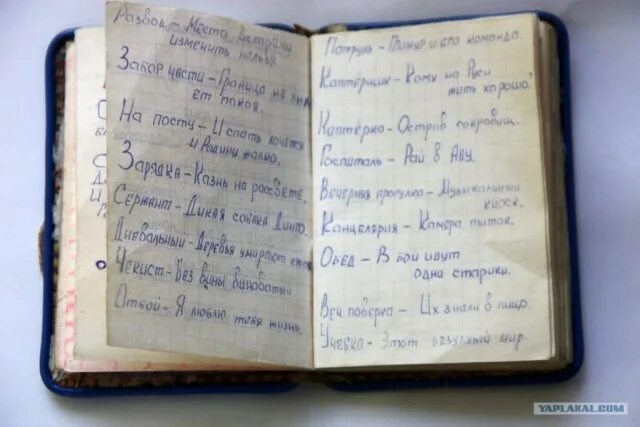 Развод - Места встречи
изменить нельзя
Забор части - Граница не зна
ет покоя.
На посту - И спать хочется
и Родину жалко.
Зарядка - Казнь на рассвете.
Сержант - Дикая собака Динго.
Дневальный - Деревья умирают стоя
Чекист - Без вины виноватый
Отбой - Я люблю тебя жизнь
Патруль - Тимур и его команда.
Каптёрщик - Кому на Руси
жить хорошо?
Каптёрка - Остров сокровищ.
Госпиталь - Рай в Аду.
Вечерняя прогулка - Музыкальный
киоск.
Канцелярия - Камера пыток.
Обед - В бой идут
одни старики.
Веч. поверка - Их знали в лицо
Учебка - Этот безумный мир.
YAPLAKAL.COM